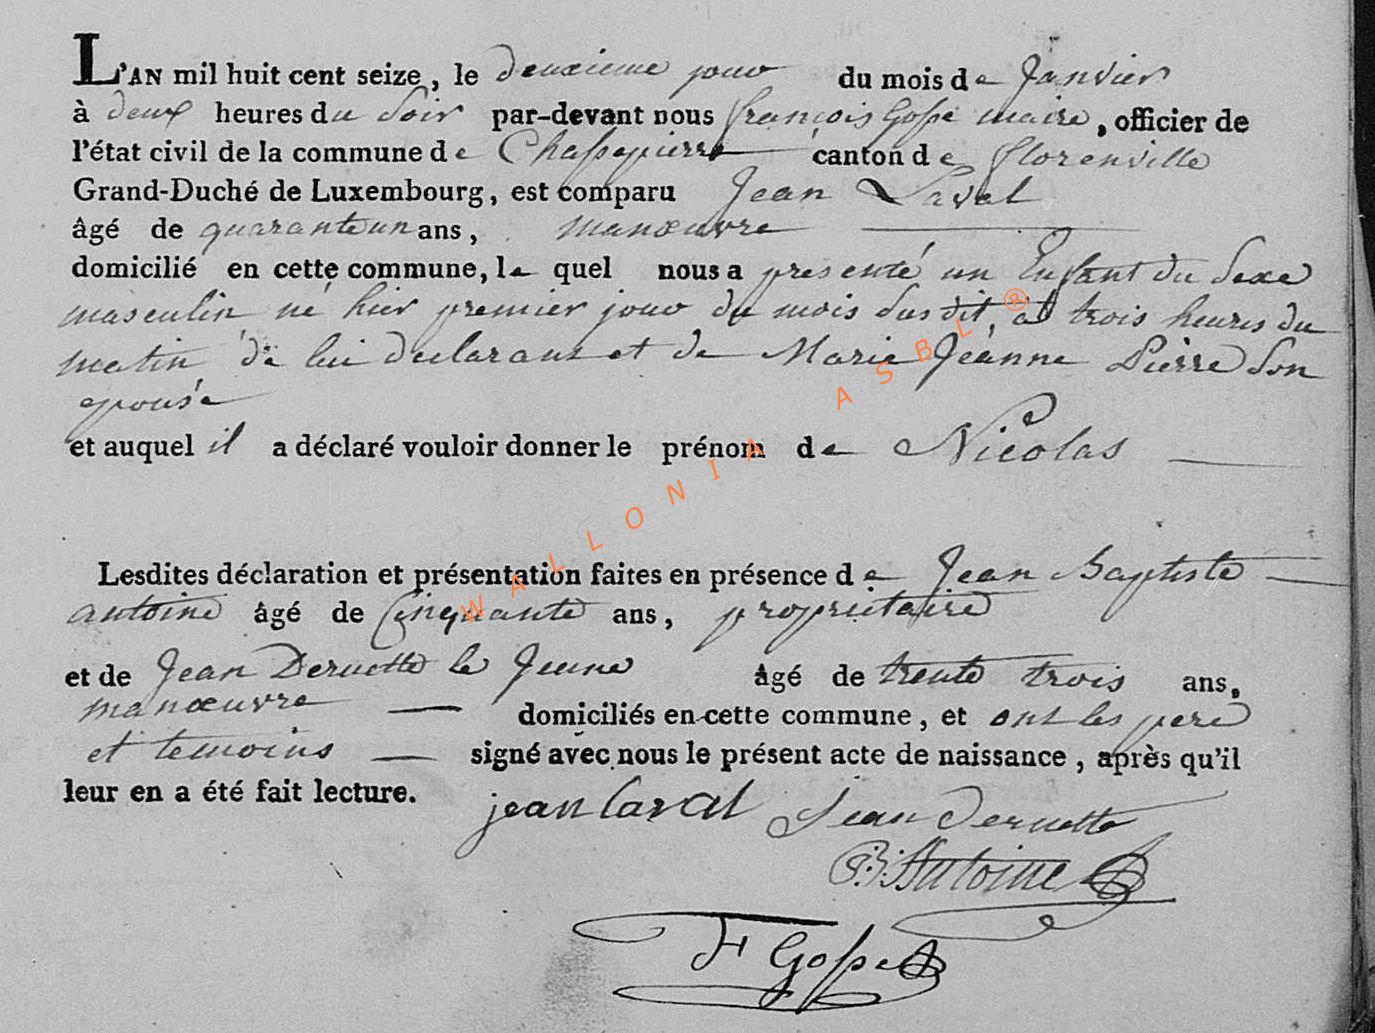 L'AN mil huit cent seize, le deuxieme jour du mois de Janvier
à deux heures du Soir par-devant nous françois Gosse maire, officier de
l'état civil de la commune de Chassepierre canton de florenville
Grand-Duché de Luxembourg, est comparu Jean Laval
âgé de quarante un ans, manœuvre
domicilié en cette commune, le quel nous a presenté un Enfant du Sexe
masculin né hier premier jour du mois susdit, à trois heures du
matin de lui declarant et de Marie Jeanne Pierre Son
epouse
et auquel il a déclaré vouloir donner le prénom de Nicolas
Lesdites déclaration et présentation faites en présence de Jean Baptiste
antoine âgé de Cinquante ans, propriétaire
et de Jean Deruette le Jeune âgé de trente trois ans,
manœuvre domiciliés en cette commune, et ont les pere
et temoins signé avec nous le présent acte de naissance, après qu'il
leur en a été fait lecture.
jean laval Jean Deruette
JB Antoine
F Gosse
WALLONIA ASBL ®